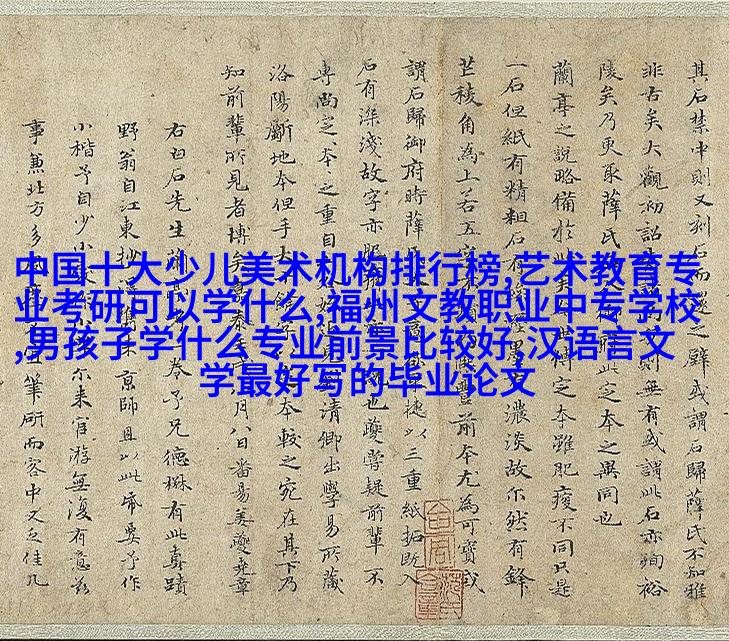 中国十大少儿美术机构排行榜,艺术教育专
业考研可以学什么,福州文教职业中专学校
,男孩子学什么专业前景比较好,汉语言文
学最好写的毕业论文
其石禁中則又刻石而之壁或謂石歸薛氏不知雅
非古矣大觀初詔則無有或謂此石亦殉裕
陵矣乃更取薛氏此定本之異同也
蘭亭之說略備於此矣世傳定本雖肥瘦不同只是
一石但紙有精粗石有墨有濃淡故尔然有鋒
芒稜角為上若五字豐前本尤為可寶或
謂石歸御府時薛捷以三重紙拓既入
石有深淺故字亦也夔嘗疑前輩不
專尚定本之重自清卿出學易所藏
洛陽斷地本但手大本較之宛在其下乃
知前輩所見者博矣月八日番昜姜夔堯章
右白石先生蘭亭卷予兄德楙有此真蹟
野翁自江東抄京師且以此帋要予作
小楷予自少小尔来官游無復有意茲
事兼北方多筆研而客中又乏佳几